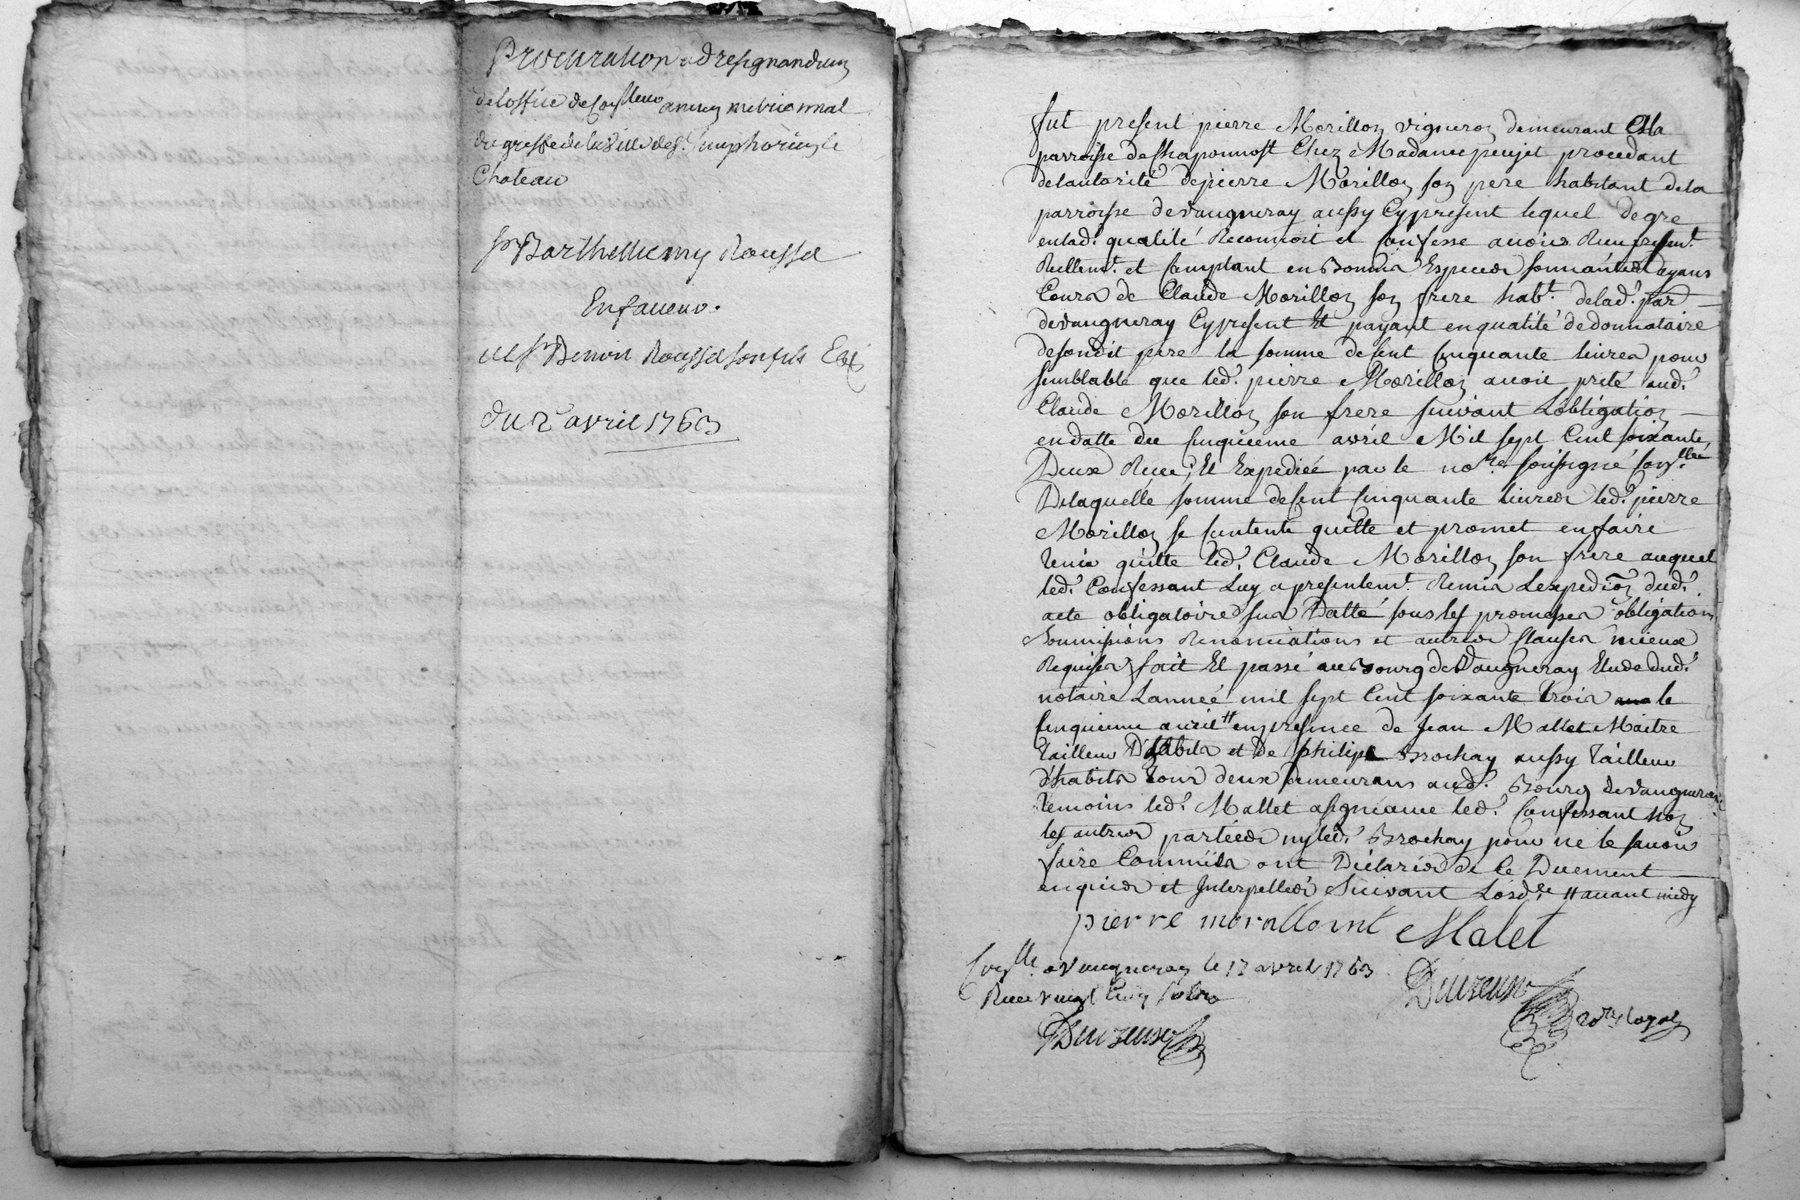 Procuration ad resignandum
de loffice de Con.ller ancien
du greffe de la Ville de St. Simphorien le
Chateau
Sr Barthellemy Roussel
En faveur.
Sr Benoit Roussel son fils
du 2e avril 1763
fut present pierre Morillon vigneron demeurant a la
parroisse de Chaponnost Chez Madame peujet procedant
de lautorité de pierre Morillon son pere habitant de la
parroisse de Vaugneray aussy Cy present lequel de gre
en lad.e qualité Reconnoit et Confesse avoir Reçu presentem.t
Reellem.t et Comptant en Bonnes Especes sonnantes ayans
Cours de Claude Morillon son frere hab.t de lad.e par.
de Vaugneray Cy present Et payant en qualité de donnataire
de sondit pere la somme de Cent Cinquante livres pour
semblable que led.t pierre Morillon avoit preté aud.t
Claude Morillon son frere suivant Lobligation
en datte du Cinquieme avril Mil sept Cent soixante
Deux Recue Et Expediée par le no.re soussigné Con.llée
De laquelle somme de Cent Cinquante livres led.t pierre
Morillon se Contente quitte et promet en faire
tenir quitte led.t Claude Morillon son frere auquel
led.t Confessant Luy a presentem.t Remis Lexpedion dud.t
acte obligatoire sus Datté sous les promesses obligations
soummissions Renonciations et autres Clauses mieux
Requises fait Et passé au Bourg de Vaugneray Etude dud.t
notaire Lanneé mil sept Cent soixante trois le
Cinquieme avril # en presence de Jean Mallet Maitre
tailleur D'habits et De philipe Brochay aussy tailleur
d'habits tous deux demeurans aud.t Bourg de Vaugneray
temoins led.t Mallet a signé avec led.t Confessant non
les autres partées ny led.t Brochay pour ne le savoir
faire Comme ils ont Déclarés de Ce Duement
enquis et Interpellés Suivant Lord.ce # avant midy
pierre morallont Malet
Con.llé a Vaugneray le 17 avril 1763
Recu vingt Cinq sols